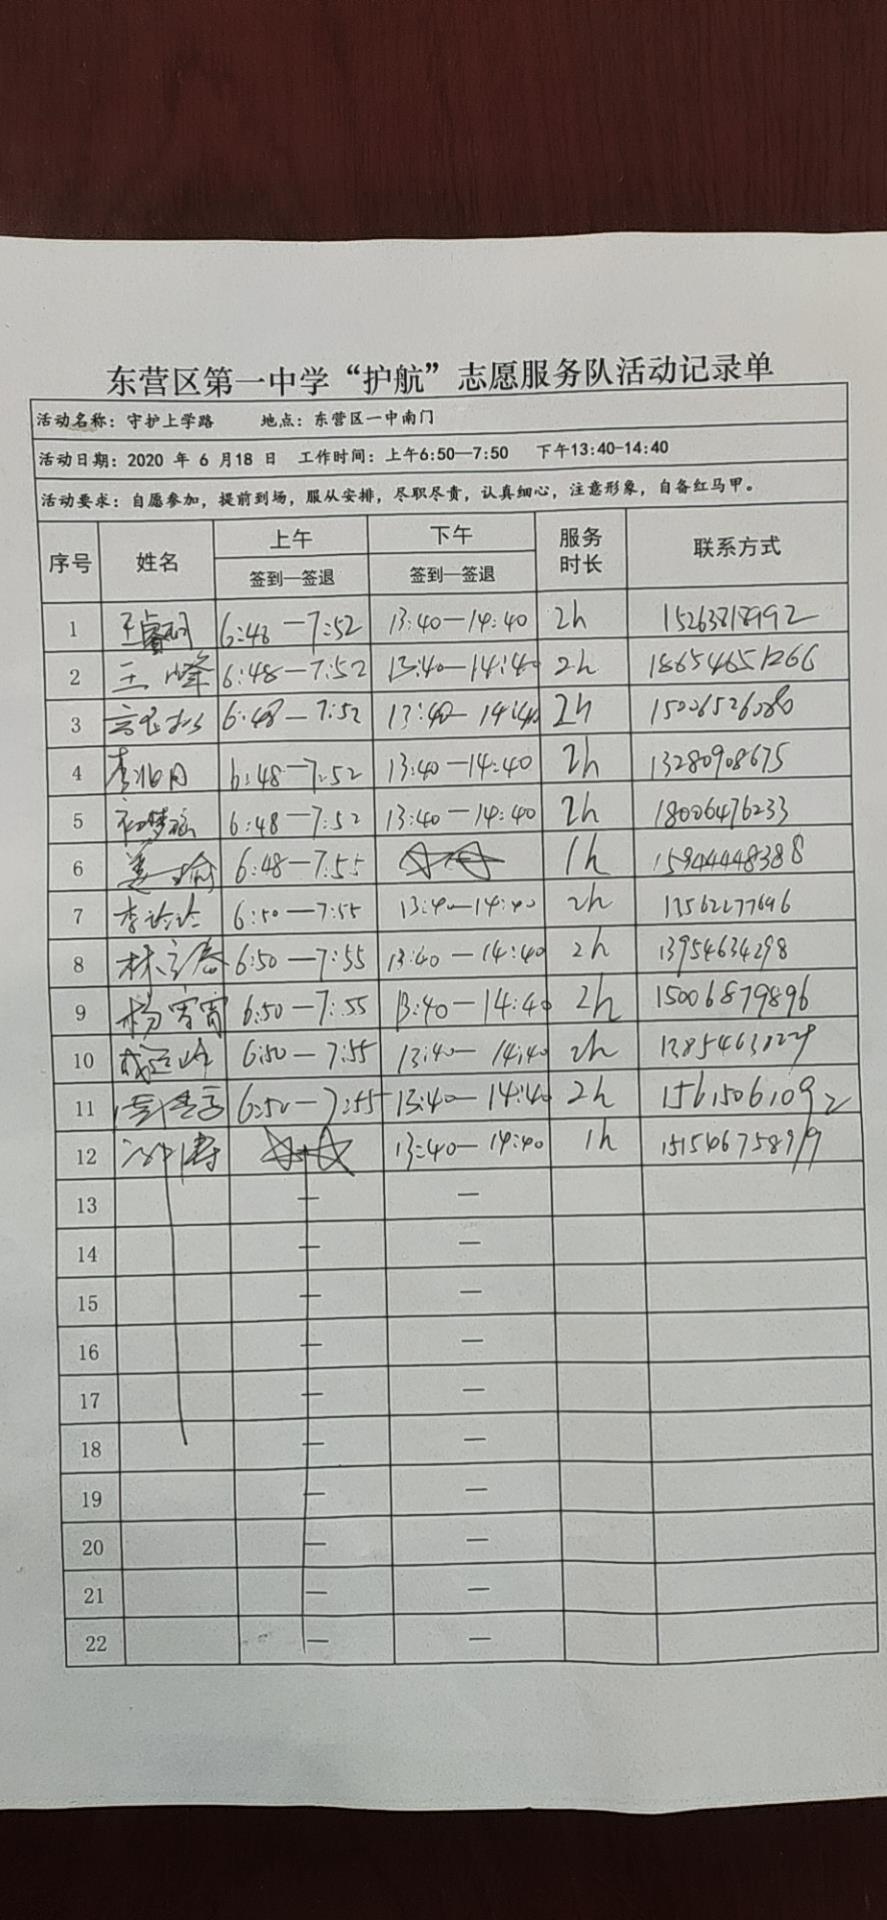 东营区第一中学“护航”志愿服务队活动记录单
活动名称：守护上学路 地点：东营区一中南门
活动日期：2020 年 6 月18 日 工作时间：上午6:50—7:50 下午13:40-14:40
活动要求：自愿参加，提前到场，服从安排，尽职尽责，认真细心，注意形象，自备红马甲。
序号 姓名 上午 下午 服务时长 联系方式
签到—签退 签到—签退
1 6:48—7:52 13:40—14:40 2h 15263818992
2 王峰 6:48—7:52 13:40—14:40 2h 18654651266
3 6:48—7:52 13:40—14:40 2h 15006526080
4 6:48—7:52 13:40—14:40 2h 13280908675
5 6:48—7:52 13:40—14:40 2h 18006476233
6 6:48—7:55 1h 15944448388
7 6:50—7:55 13:40—14:40 2h
8 6:50—7:55 13:40—14:40 2h 13954634298
9 6:50—7:55 13:40—14:40 2h 15006879896
10 6:50—7:55 13:40—14:40 2h
11 6:50—7:55 13:40—14:40 2h 15615061092
12 13:40—14:40 1h
13 — —
14 — —
15 — —
16 — —
17 — —
18 — —
19 — —
20 — —
21 — —
22 — —